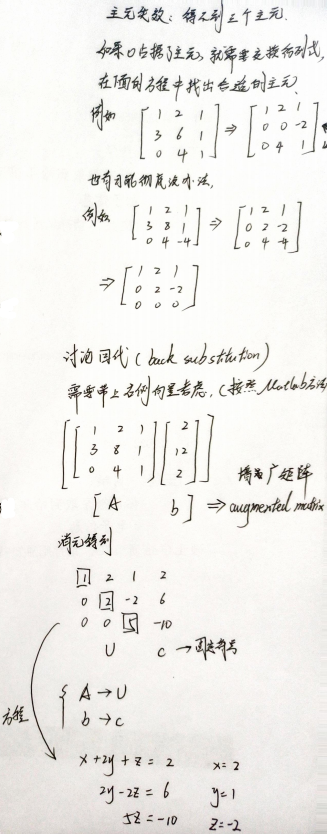 主元失效：得不到三个主元.
如果0占据了主元，就需要交换行列式，
在下面的方程中找出合适的主元.
例如 [1 2 1; 3 6 1; 0 4 1] ⇒ [1 2 1; 0 0 -2; 0 4 1]
也有可能彻底没办法，
例如 [1 2 1; 3 8 1; 0 4 -4] ⇒ [1 2 1; 0 2 -2; 0 4 -4]
⇒ [1 2 1; 0 2 -2; 0 0 0]
讨论回代 (back substitution)
需要带上右侧向量考虑. (按照Matlab方法
[[1 2 1; 3 8 1; 0 4 1] [2; 12; 2]]
增广矩阵
[A b] ⇒ augmented matrix
消元得到
1 2 1 2
0 2 -2 6
0 0 5 -10
U c →固定符号
A → U
b → c
方程
x + 2y + z = 2 x = 2
2y - 2z = 6 y = 1
5z = -10 z = -2